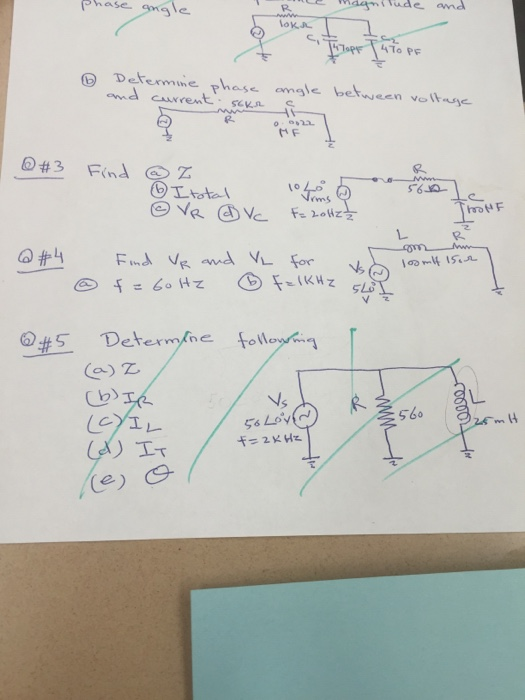 phase angle
magnitude and
R
10KΩ
C1 470PF
C2 470 PF
(b) Determine phase angle between voltage
and current.
56KΩ
R
C
0.022
μF
Q#3 Find (a) Z
(b) Itotal
(c) VR (d) VC
10∠0°
Vrms
F=20Hz
R
56Ω
C
100μF
Q#4 Find VR and VL for
(a) f = 60 Hz (b) F=1KHz
Vs
5∠0°
V
L
100mH
R
15Ω
Q#5 Determine following
(a) Z
(b) IR
(c) IL
(d) IT
(e) θ
Vs
50∠0°V
f=2KHz
R
560
L
25mH